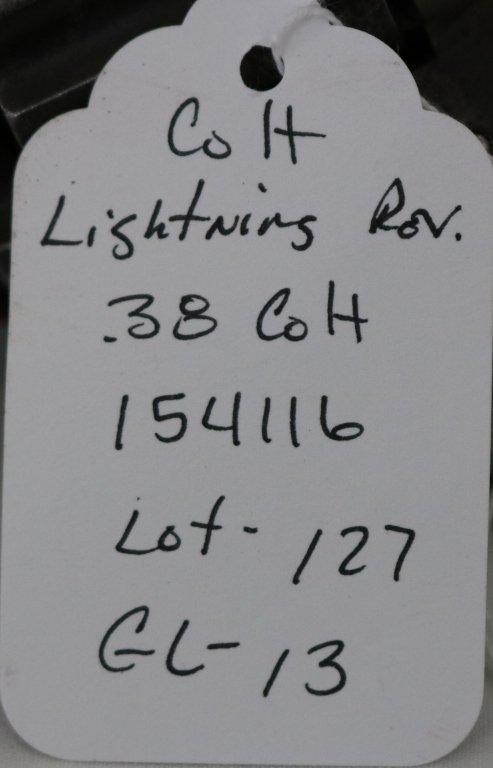 Colt
Lightning Rev.
.38 Colt
154116
Lot- 127
GL- 13